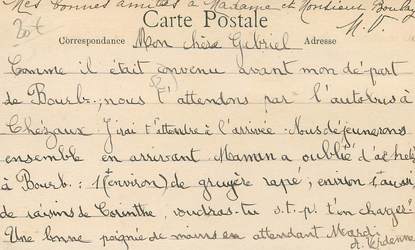 Mes bonnes amitiés à Madame et Monsieur Boulay
M. V.
Carte Postale
Correspondance Mon chère Gabriel Adresse
Comme il était convenu avant mon départ
de Bourb., nous t'attendons par l'autobus à
Chézaux J'irai t'attendre à l'arrivée. Nous déjeunerons
ensemble en arrivant Maman a oublié d'acheter
à Bourb.: 1# (environ) de gruyère rapé, environ 1# aussi
de raisins de Corinthe, voudras-tu s.t.p. t'en charger?
Une bonne poignée de mains en attendant Mardi.